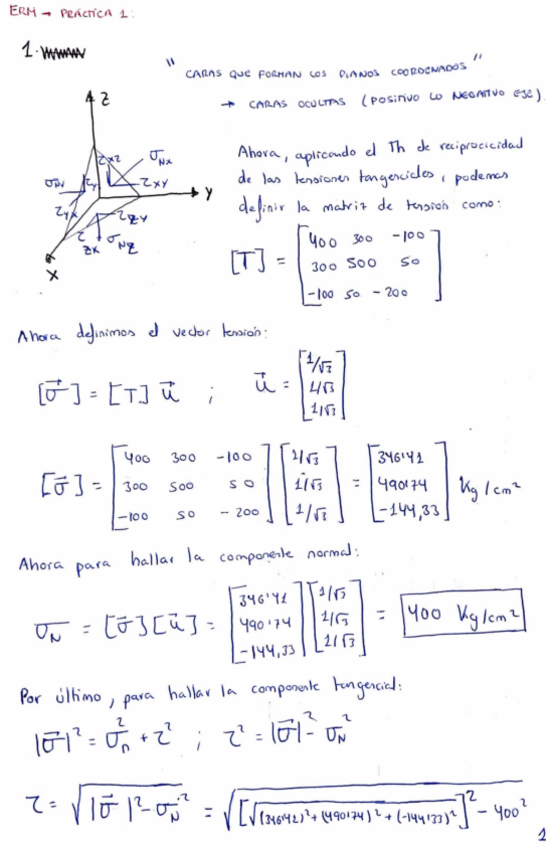 ERM → PRÁCTICA 1:
1.
"CARAS QUE FORMAN LOS PLANOS COORDENADOS"
→ CARAS OCULTAS (POSITIVO LO NEGATIVO EJE).
Z
τxz σNx
σNY τY τXY
Y
τYX τZY
τZX σNZ
X
Ahora, aplicando el Th de reciprocicidad
de las tensiones tangenciales, podemos
definir la matriz de tensión como:
[T] = [400 300 -100
300 500 50
-100 50 -200]
Ahora definimos el vector tensión:
[σ⃗] = [T] u⃗ ; u⃗ = [1/√3
1/√3
1/√3]
[σ⃗] = [400 300 -100
300 500 50
-100 50 -200] [1/√3
1/√3
1/√3] = [346'41
490'74
-144,33] Kg/cm²
Ahora para hallar la componente normal:
σN = [σ⃗][u⃗] = [346'41
490'74
-144,33] [1/√3
1/√3
1/√3] = 400 Kg/cm²
Por último, para hallar la componente tangencial:
|σ⃗|² = σn² + τ² ; τ² = |σ⃗|² - σN²
τ = √(|σ⃗|² - σN²) = √([√((346'41)² + (490'74)² + (-144'33)²)]² - 400²)
1